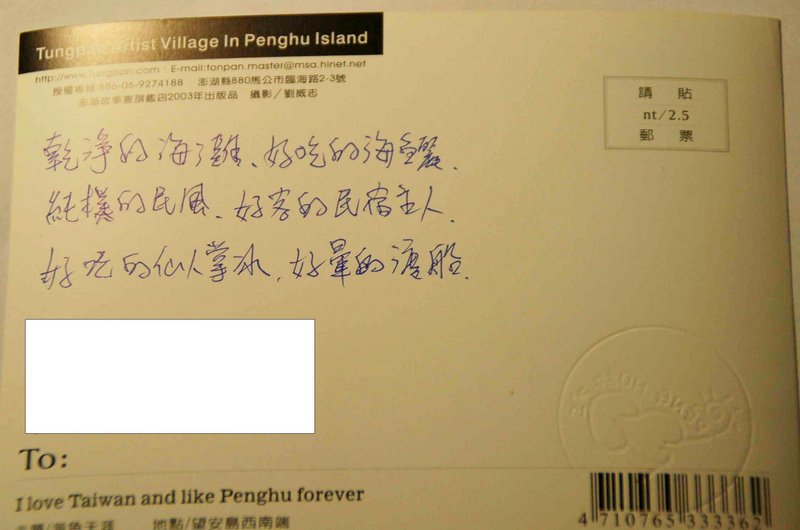 Tungpan Artist Village In Penghu Island
http://www.tungpan.com E-mail:tonpan.master@msa.hinet.net
授權專線 886-06-9274188 澎湖縣880馬公市臨海路2-3號
澎湖故事妻旗艦店2003年出版品 攝影／劉威志
請貼
nt/2.5
郵票
乾淨的海灘、好吃的海鱺、
純樸的民風、好客的民宿主人、
好吃的仙人掌冰、好暈的渡船、
To:
I love Taiwan and like Penghu forever
地點/望安島西南端
4 710765 333362